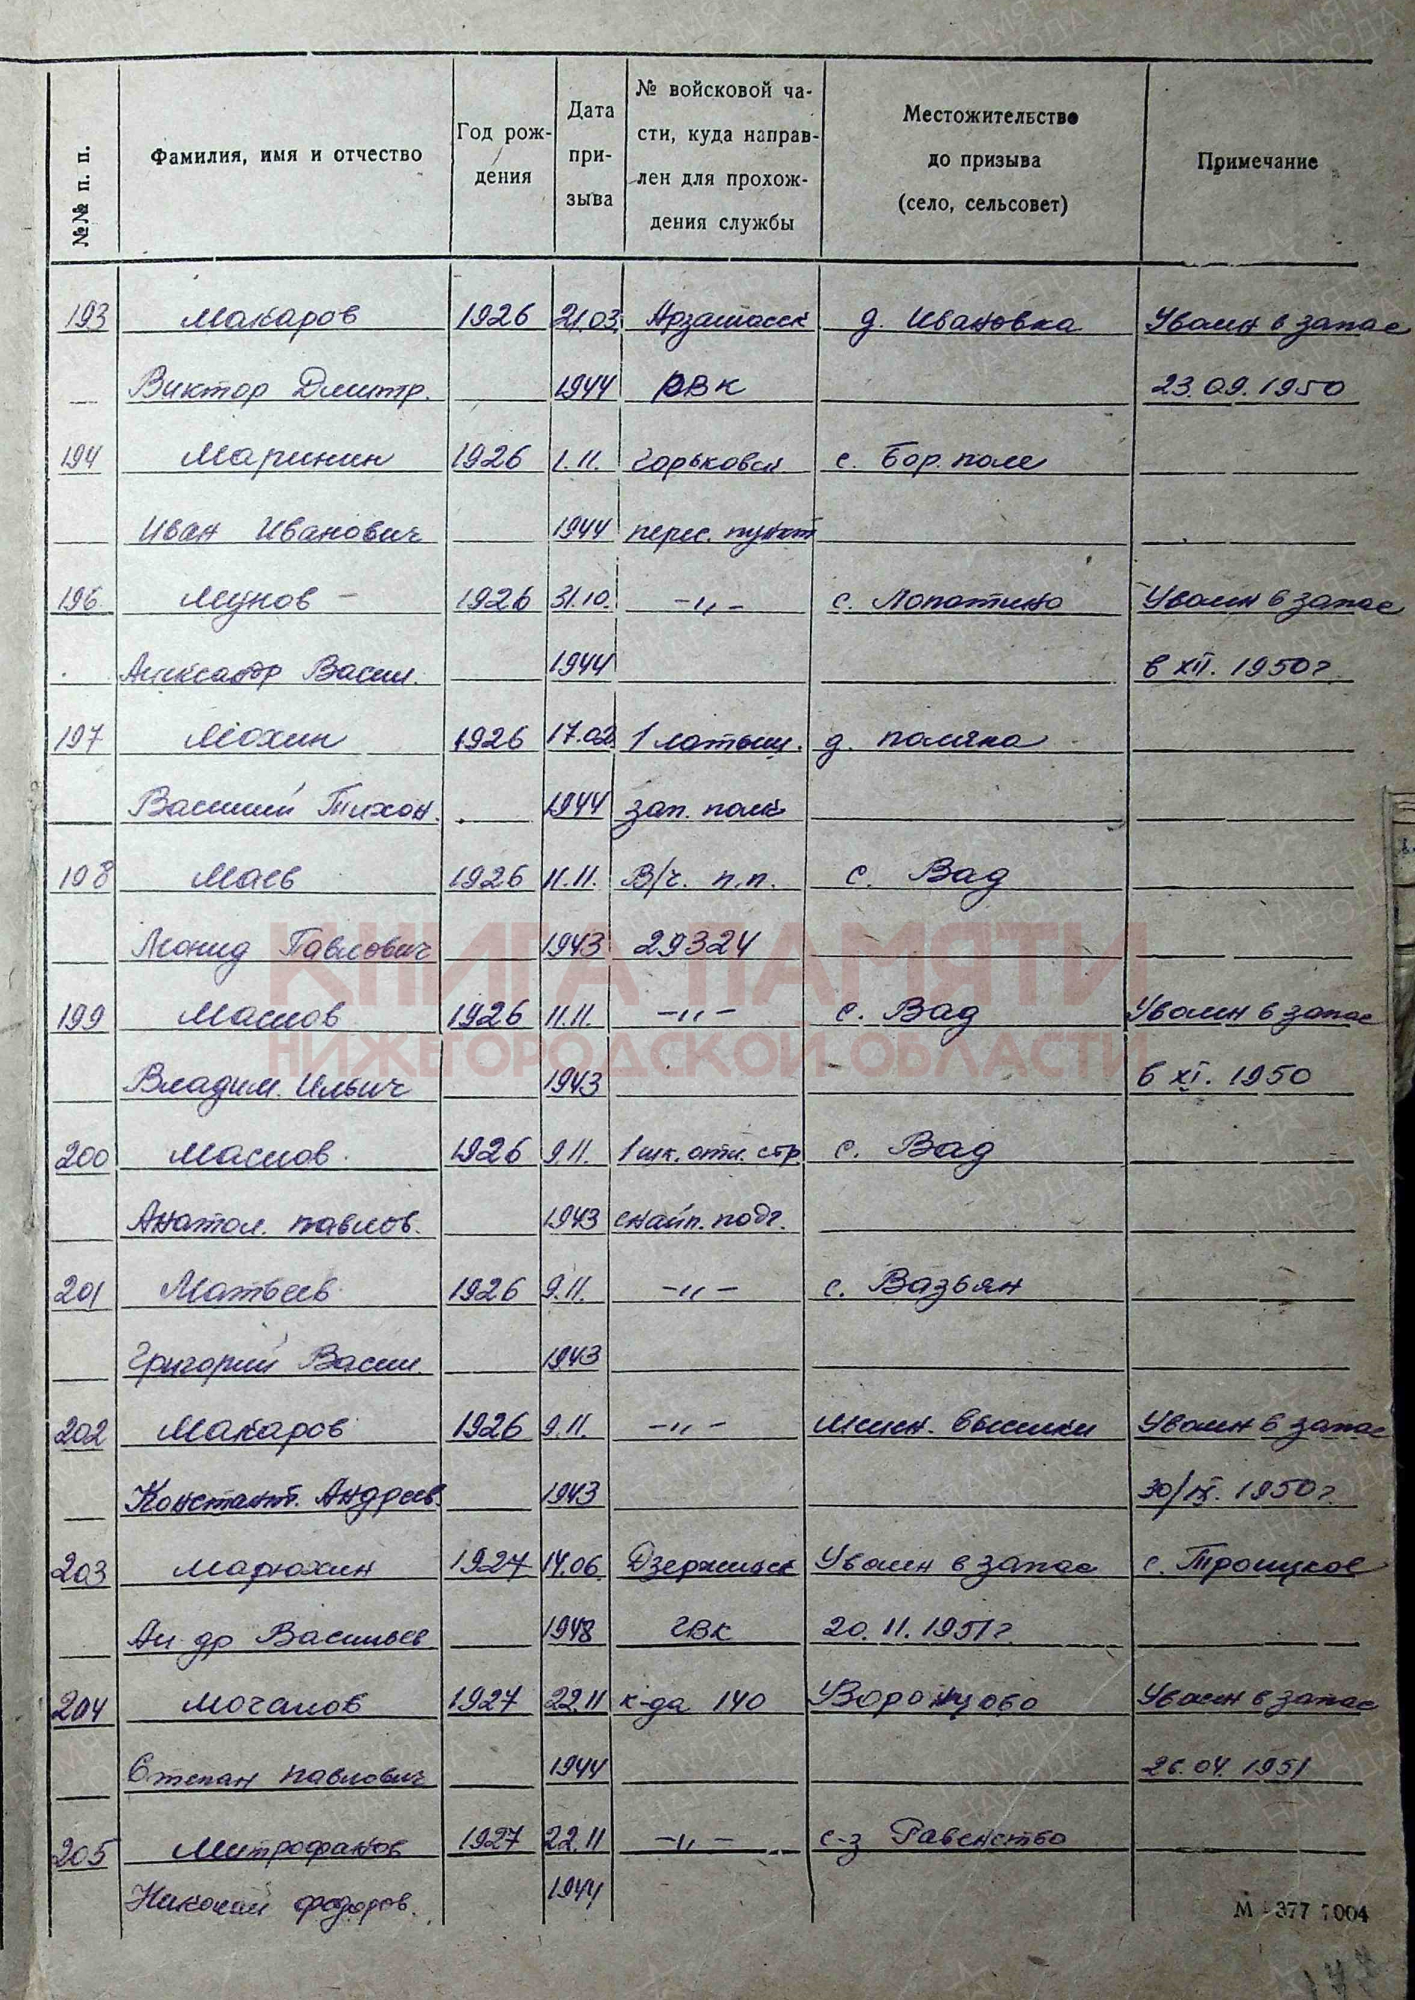 №№ п. п. Фамилия, имя и отчество Год рождения Дата призыва № войсковой части, куда направлен для прохождения службы Местожительство до призыва (село, сельсовет) Примечание
193 Макаров 1926 21.03. Арзамасск д. Ивановка Уволен в запас
Виктор Дмитр. 1944 РВК 23.09.1950
194 Маринин 1926 1.11. Горьковск с. Бор. поле
Иван Иванович 1944 перес. пункт
196 Мунов 1926 31.10. -„- с. Лопатино Уволен в запас
Александр Васил. 1944 в XII. 1950г.
197 Мохин 1926 17.02 1 латыш. д. поляна
Василий Тихон. 1944 зап. полк
198 Маев 1926 11.11. В/ч. п.п. с. Вад
Леонид Павлович 1943 29324
199 Маслов 1926 11.11. -„- с. Вад Уволен в запас
Владим. Ильич 1943 в XI. 1950
200 Маслов 1926 9.11. 1 шк. отл. стр. с. Вад
Анатол. павлов. 1943 снайп. подг.
201 Матвеев 1926 9.11. -„- с. Вазьян
Григорий Васил. 1943
202 Макаров 1926 9.11. -„- выселки Уволен в запас
Константт. Андреев. 1943 30/IX. 1950г.
203 Марюхин 1927 14.06. Дзержинск Уволен в запас с. Троицкое
Ал-др Васильев 1948 ГВК 20.11.1951г.
204 Мочалов 1927 22.11 к-да 140 Воронцово Уволен в запас
Степан павлович 1944 26.04.1951
205 Митрофанов 1927 22.11 -„- с-з Равенство
Николай федоров. 1944
М-377 7004
КНИГА ПАМЯТИ
НИЖЕГОРОДСКОЙ ОБЛАСТИ